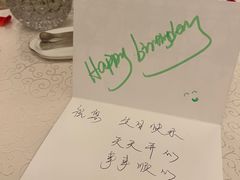 Happy Birthday
生日快乐
天天开心
事事顺心